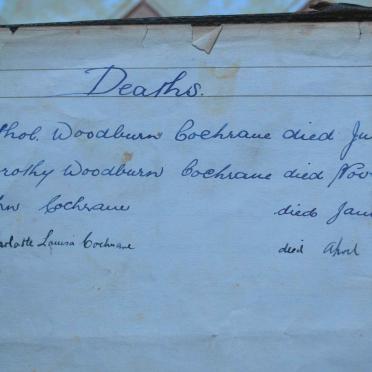 Deaths.
thol. Woodburn Cochrane died Ju
rothy Woodburn Cochrane died Nov
hn Cochrane died Jan
arlotte Louisa Cochrane died April